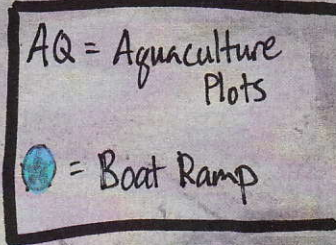 AQ = Aquaculture
Plots
= Boat Ramp